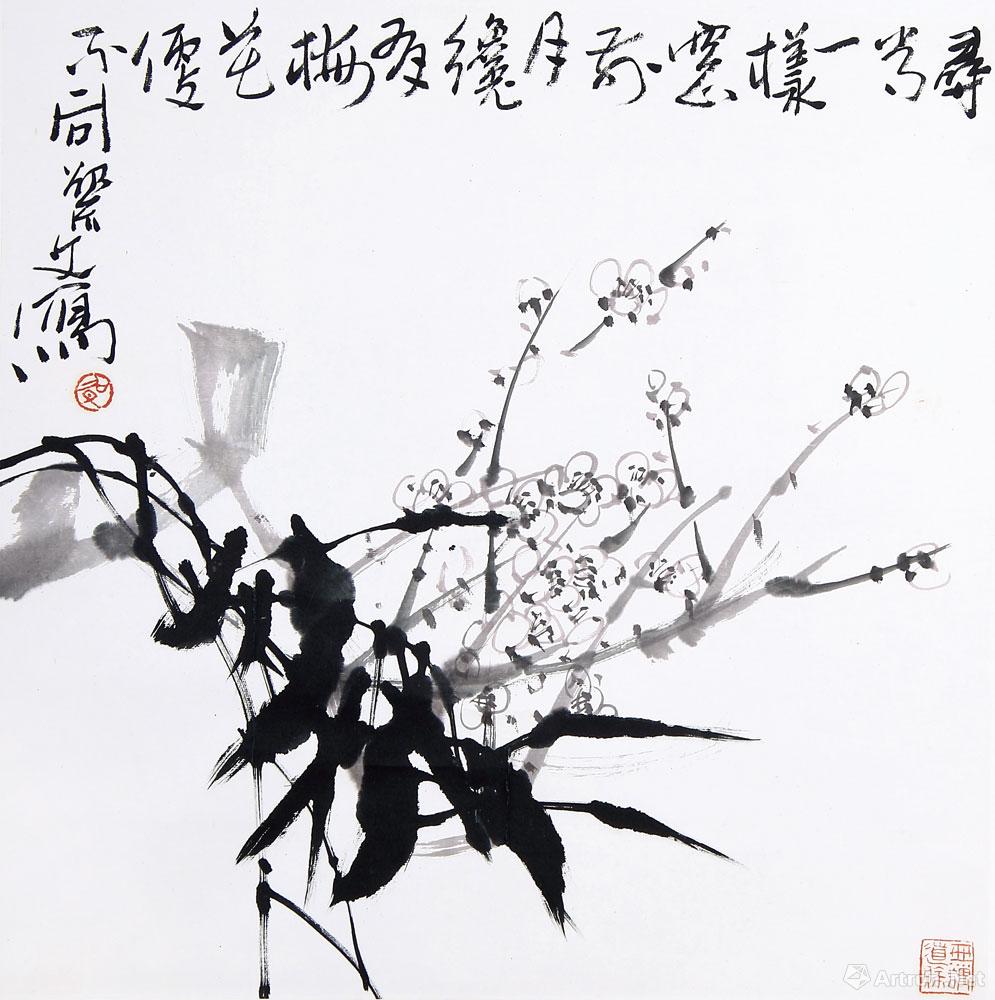 尋常一樣窓前月纔有梅花便
不同
文寫